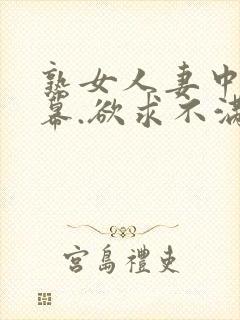 熟女人妻中
幕.欲求不満
宮島禮吏